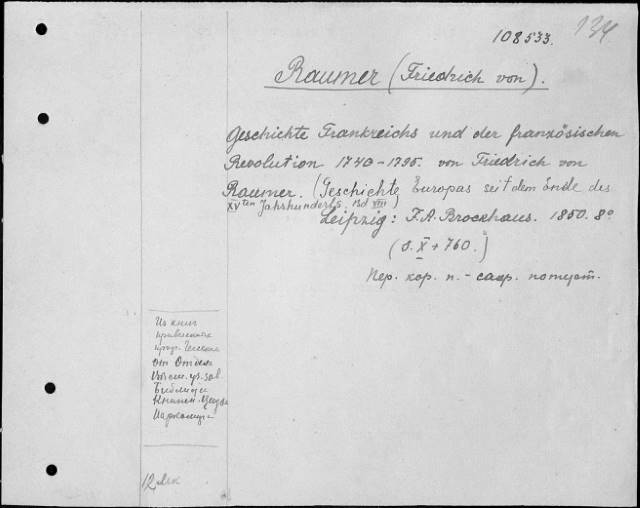 108533.
134
Raumer (Friedrich von).
Geschichte Frankreichs und der französischen
Revolution 1740-1795. von Friedrich von
Raumer. (Geschichte Europas seit dem Ende des
XVten Jahrhunderts. Bd VIII)
Leipzig: F. A. Brockhaus. 1850. 8°
(S. X + 760.)
Пер. кор. п. - сафр. потуст.
Из книг
от Отдела
Библ